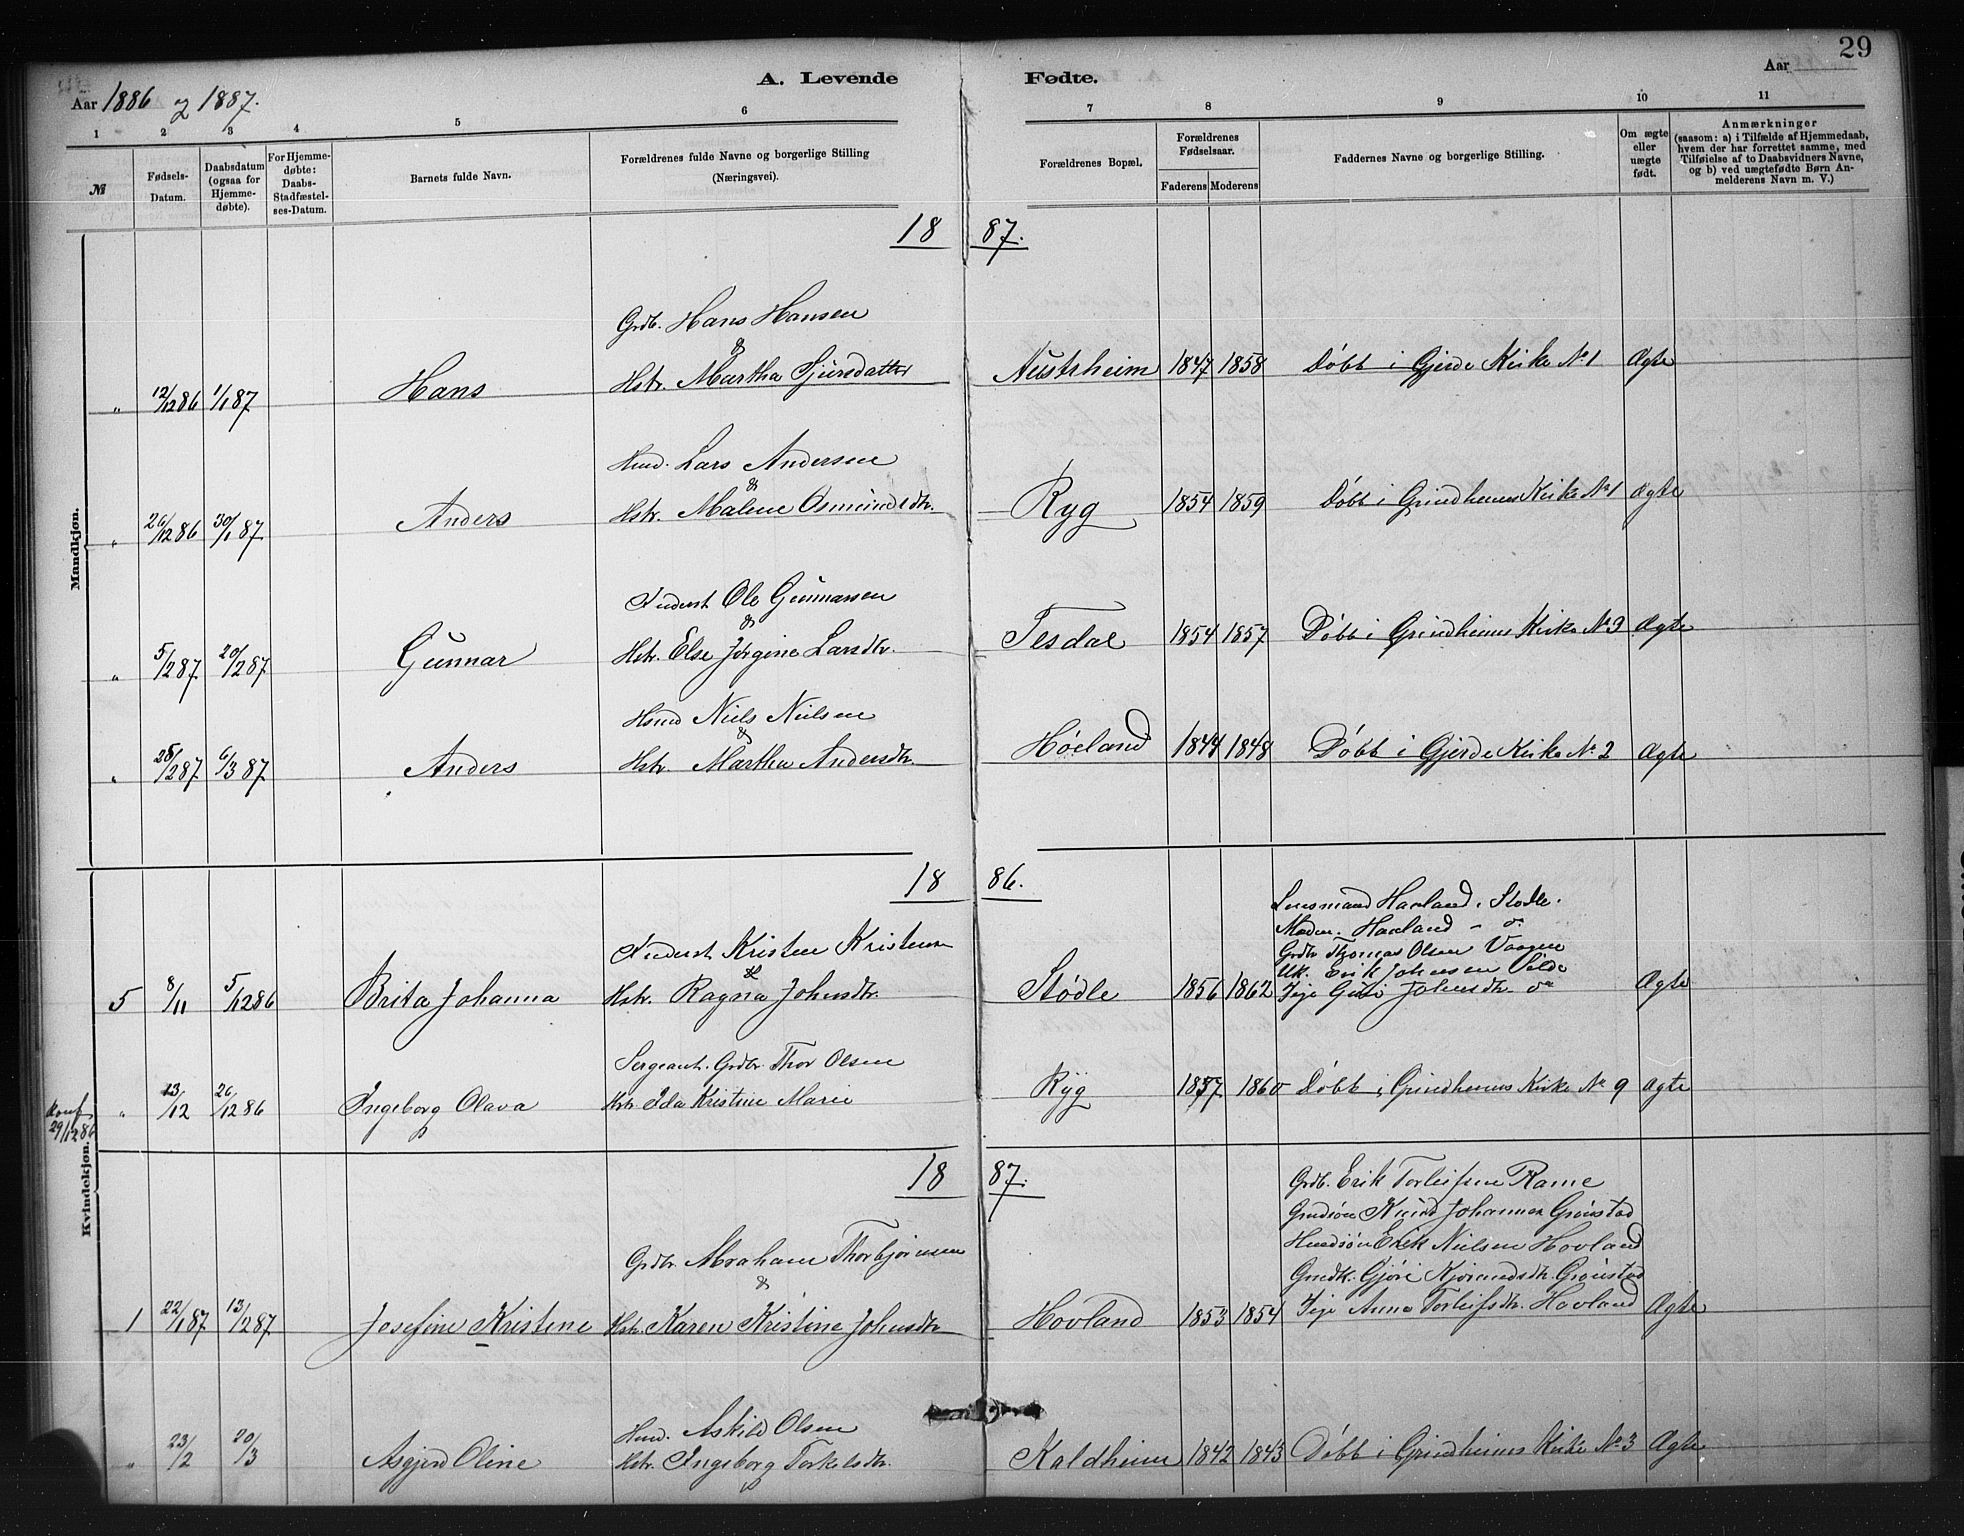 29
A. Levende Fødte.
Aar 1886 og 1887.
Aar
1 2 3 4 5 6 7 8 9 10 11
№
Fødsels-Datum.
Daabsdatum (ogsaa for Hjemme-døbte).
For Hjemme-døbte: Daabs-Stadfæstel-ses-Datum.
Barnets fulde Navn.
Forældrenes fulde Navne og borgerlige Stilling
(Næringsvei).
Forældrenes Bopæl.
Forældrenes Fødselsaar.
Faderens Moderens
Faddernes Navne og borgerlige Stilling.
Om ægte eller uægte født.
Anmærkninger
(saasom: a) i Tilfælde af Hjemmedaab,
hvem der har forrettet samme, med
Tilføielse af to Daabsvidners Navne,
og b) ved uægtefødte Børn An-
melderens Navn m. V.)
Mandkjøn.
18 87.
Grdb. Hans Hansen
&
" 12/12 86 1/1 87 Hans Hstr. Martha Sjursdatter Austrheim 1847 1858 Døbt i Gjerde Kirke № 1 Ægte
Hmd. Lars Andersen
&
" 26/12 86 30/1 87 Anders Hstr. Malene Osmundsdtr. Ryg 1854 1859 Døbt i Grindheims Kirke № 1 Ægte
Inderst Ole Gunnarsen
&
" 5/2 87 20/2 87 Gunnar Hstr. Else Jørgine Larsdtr. Tesdal 1854 1857 Døbt i Grindheims Kirke № 3 Ægte
Hsmd Niels Nielsen
&
" 28/2 87 6/3 87 Anders Hstr. Martha Andersdtr. Høeland 1844 1848 Døbt i Gjerde Kirke № 2 Ægte
18 86.
Kvindekjøn.
Lensmand Haaland, Stødle.
Madm. Haaland
Inderst Kristen Kristensen Grdbr Thomas Olsen Vaagen
& Uk. Erik Johnsen Silde
5 8/11 5/12 86 Brita Johanna Hstr. Ragna Johnsdtr. Stødle 1856 1862 Pige Guri Johnsdtr. Ægte
Sergeant. Grdbr Thor Olsen
" 13/12 26/12 86 Ingeborg Olava Hstr. Ida Kristine Marie Ryg 1857 1860 Døbt i Grindheims Kirke № 9 Ægte
Konf 29/12 86
18 87.
Grdb. Erik Torleifsen Rame
Grdsøn Knud Johannesen Grønstad
Grdbr Abraham Thorbjørnsen Hmdsøn Erik Nielsen Hovland
& Grmdk. Gjøri Kjørandsdtr. Grønstad
1 22/1 87 13/2 87 Josefine Kristine Hstr. Karen Kristine Johnsdtr Hovland 1853 1854 Pige Anna Torleifsdtr. Hovland Ægte
Hmd. Askild Olsen
" 23/2 20/3 Asgjerd Oline Hstr. Ingeborg Torkelsdtr. Kaldheim 1842 1843 Døbt i Grindheims Kirke № 3 Ægte